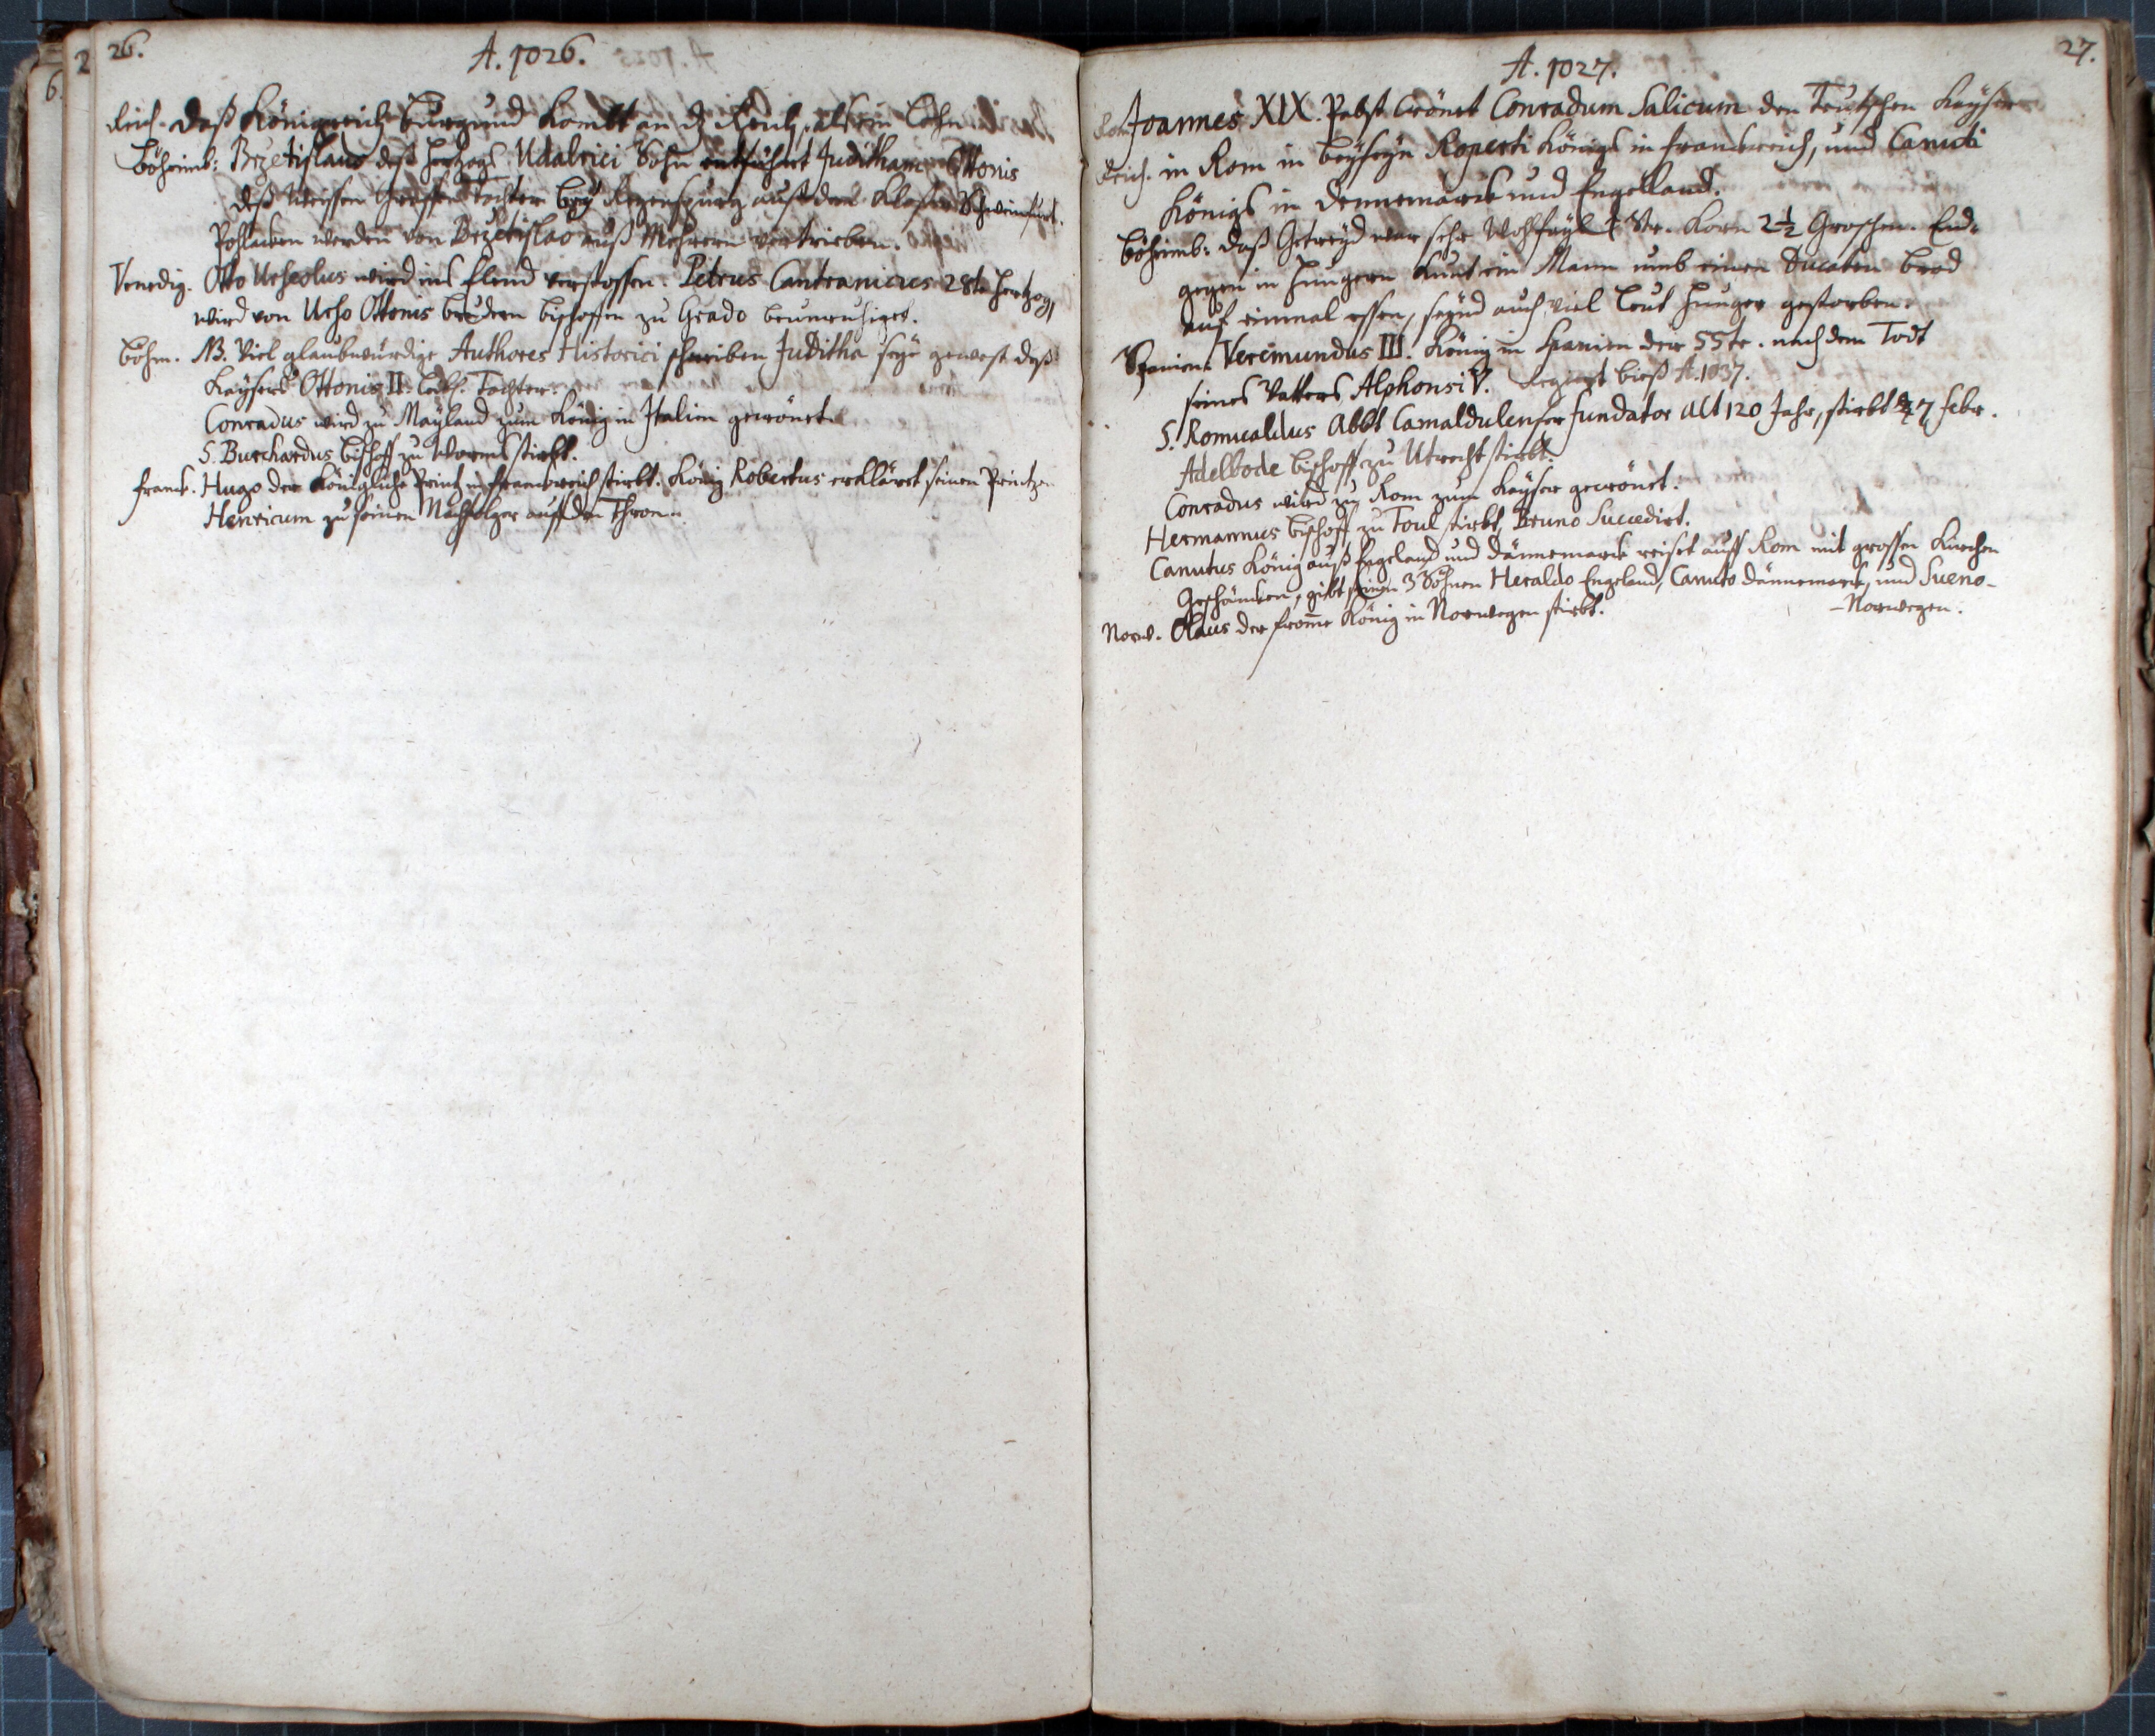 26.
A. 1026.
Reich. Daß Königreich Burgund kombt an dz Reich, als ein Lehn
Böheimb: Brzetislaus deß Hertzogs Udalrici Sohn entführt Juditham Ottonis
deß Weissen Graffen Tochter bey Regenspurg auß dem Kloster Schweinfurt.
Pohlacken werden von Brzetislao auß Mehrern vertrieben.
Venedig. Otto Urseolus wird ins Elend verstossen. Petrus Centranicus 28te Hertzog,
wird von Urso Ottonis brudern bischoffen zu Grado beunruhiget.
Böhm. NB. Viel glaubwürdige Authores Historici schreiben Juditha seye gewest deß
Kaysers Ottonis II. Tochter.
Conradus wird zu Mayland zum König in Italien gecrönet.
S. Burchardus bischoff zu Worms stirbt.
Franck. Hugo der Königliche Printz in Franckreich stirbt. König Robertus erkläret seinen Printzen
Henricum zu seinen Nachfolger auff den Thron.
27.
A. 1027.
Rom Joannes XIX. Pabst Crönet Conradum Salicum den Teutschen Kayser
Reich. in Rom in beyseyn Roperti Königs in Franckreich, und Canuti
Königs in Dennemarck und Engelland.
Böheimb: Daß Getreyd war sehr Wohlfeyl 1 Str. Korn 2½ Groschen. Ent-
gegen in Hungern kunt ein Mann umb einen Ducaten brod
auf einmal essen, seynd auch viel Leut hunger gestorben.
Spanien. Veremundus III. König in Spanien der 55te. nach dem Todt
seines Vatters Alphonsi V. Regiert bieß A. 1037.
S. Romualdus Abbt Camaldulenser fundator alt 120 Jahr, stirbt 7 Febr.
Adelbode bischoff zu Utrecht stirbt.
Conradus wird zu Rom zum Kayser gecrönet.
Hermannus bischoff zu Toul stirbt, Bruno Succedirt.
Canutus König auß Engeland und Dännemarck reiset auff Rom mit grossen Kirchen
Geschäncken, gibt seinen 3 Söhnen Heraldo Engeland, Canuto Dännemarck, und Sueno-
-Norwegen.
Norw. Olaus der fromme König in Norwegen stirbt.